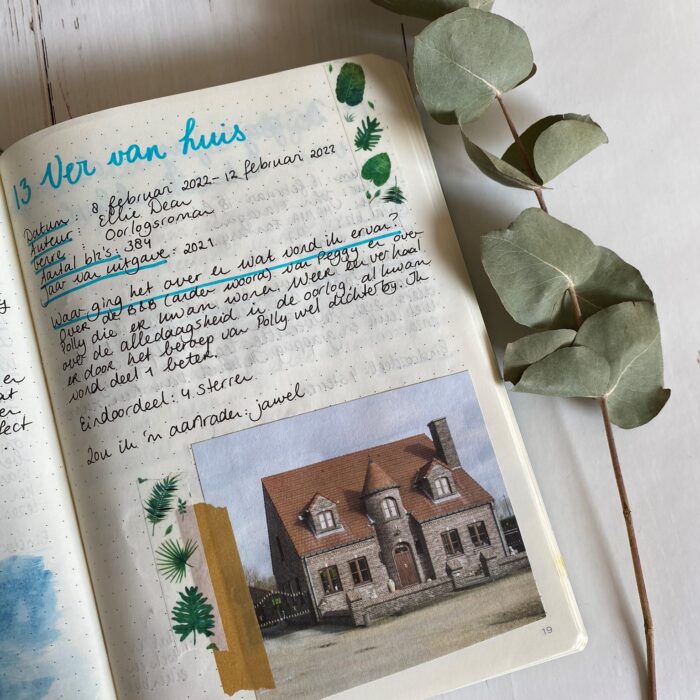 13 Ver van huis
Datum : 8 februari 2022 - 12 februari 2022
Auteur : Ellie Dean
Genre : Oorlogsroman
Aantal blz's : 384
Jaar van uitgave : 2021
Waar ging het over en wat vond ik ervan?
Over de B&B (ander woord) van Peggy en over
Polly die er kwam wonen. Weer een verhaal
over de alledaagsheid in de oorlog, al kwam
er door het beroep van Polly wel dichterbij. Ik
vond deel 1 beter.
Eindoordeel : 4 sterren
Zou ik 'm aanraden : jawel
19
er
at
er
fect